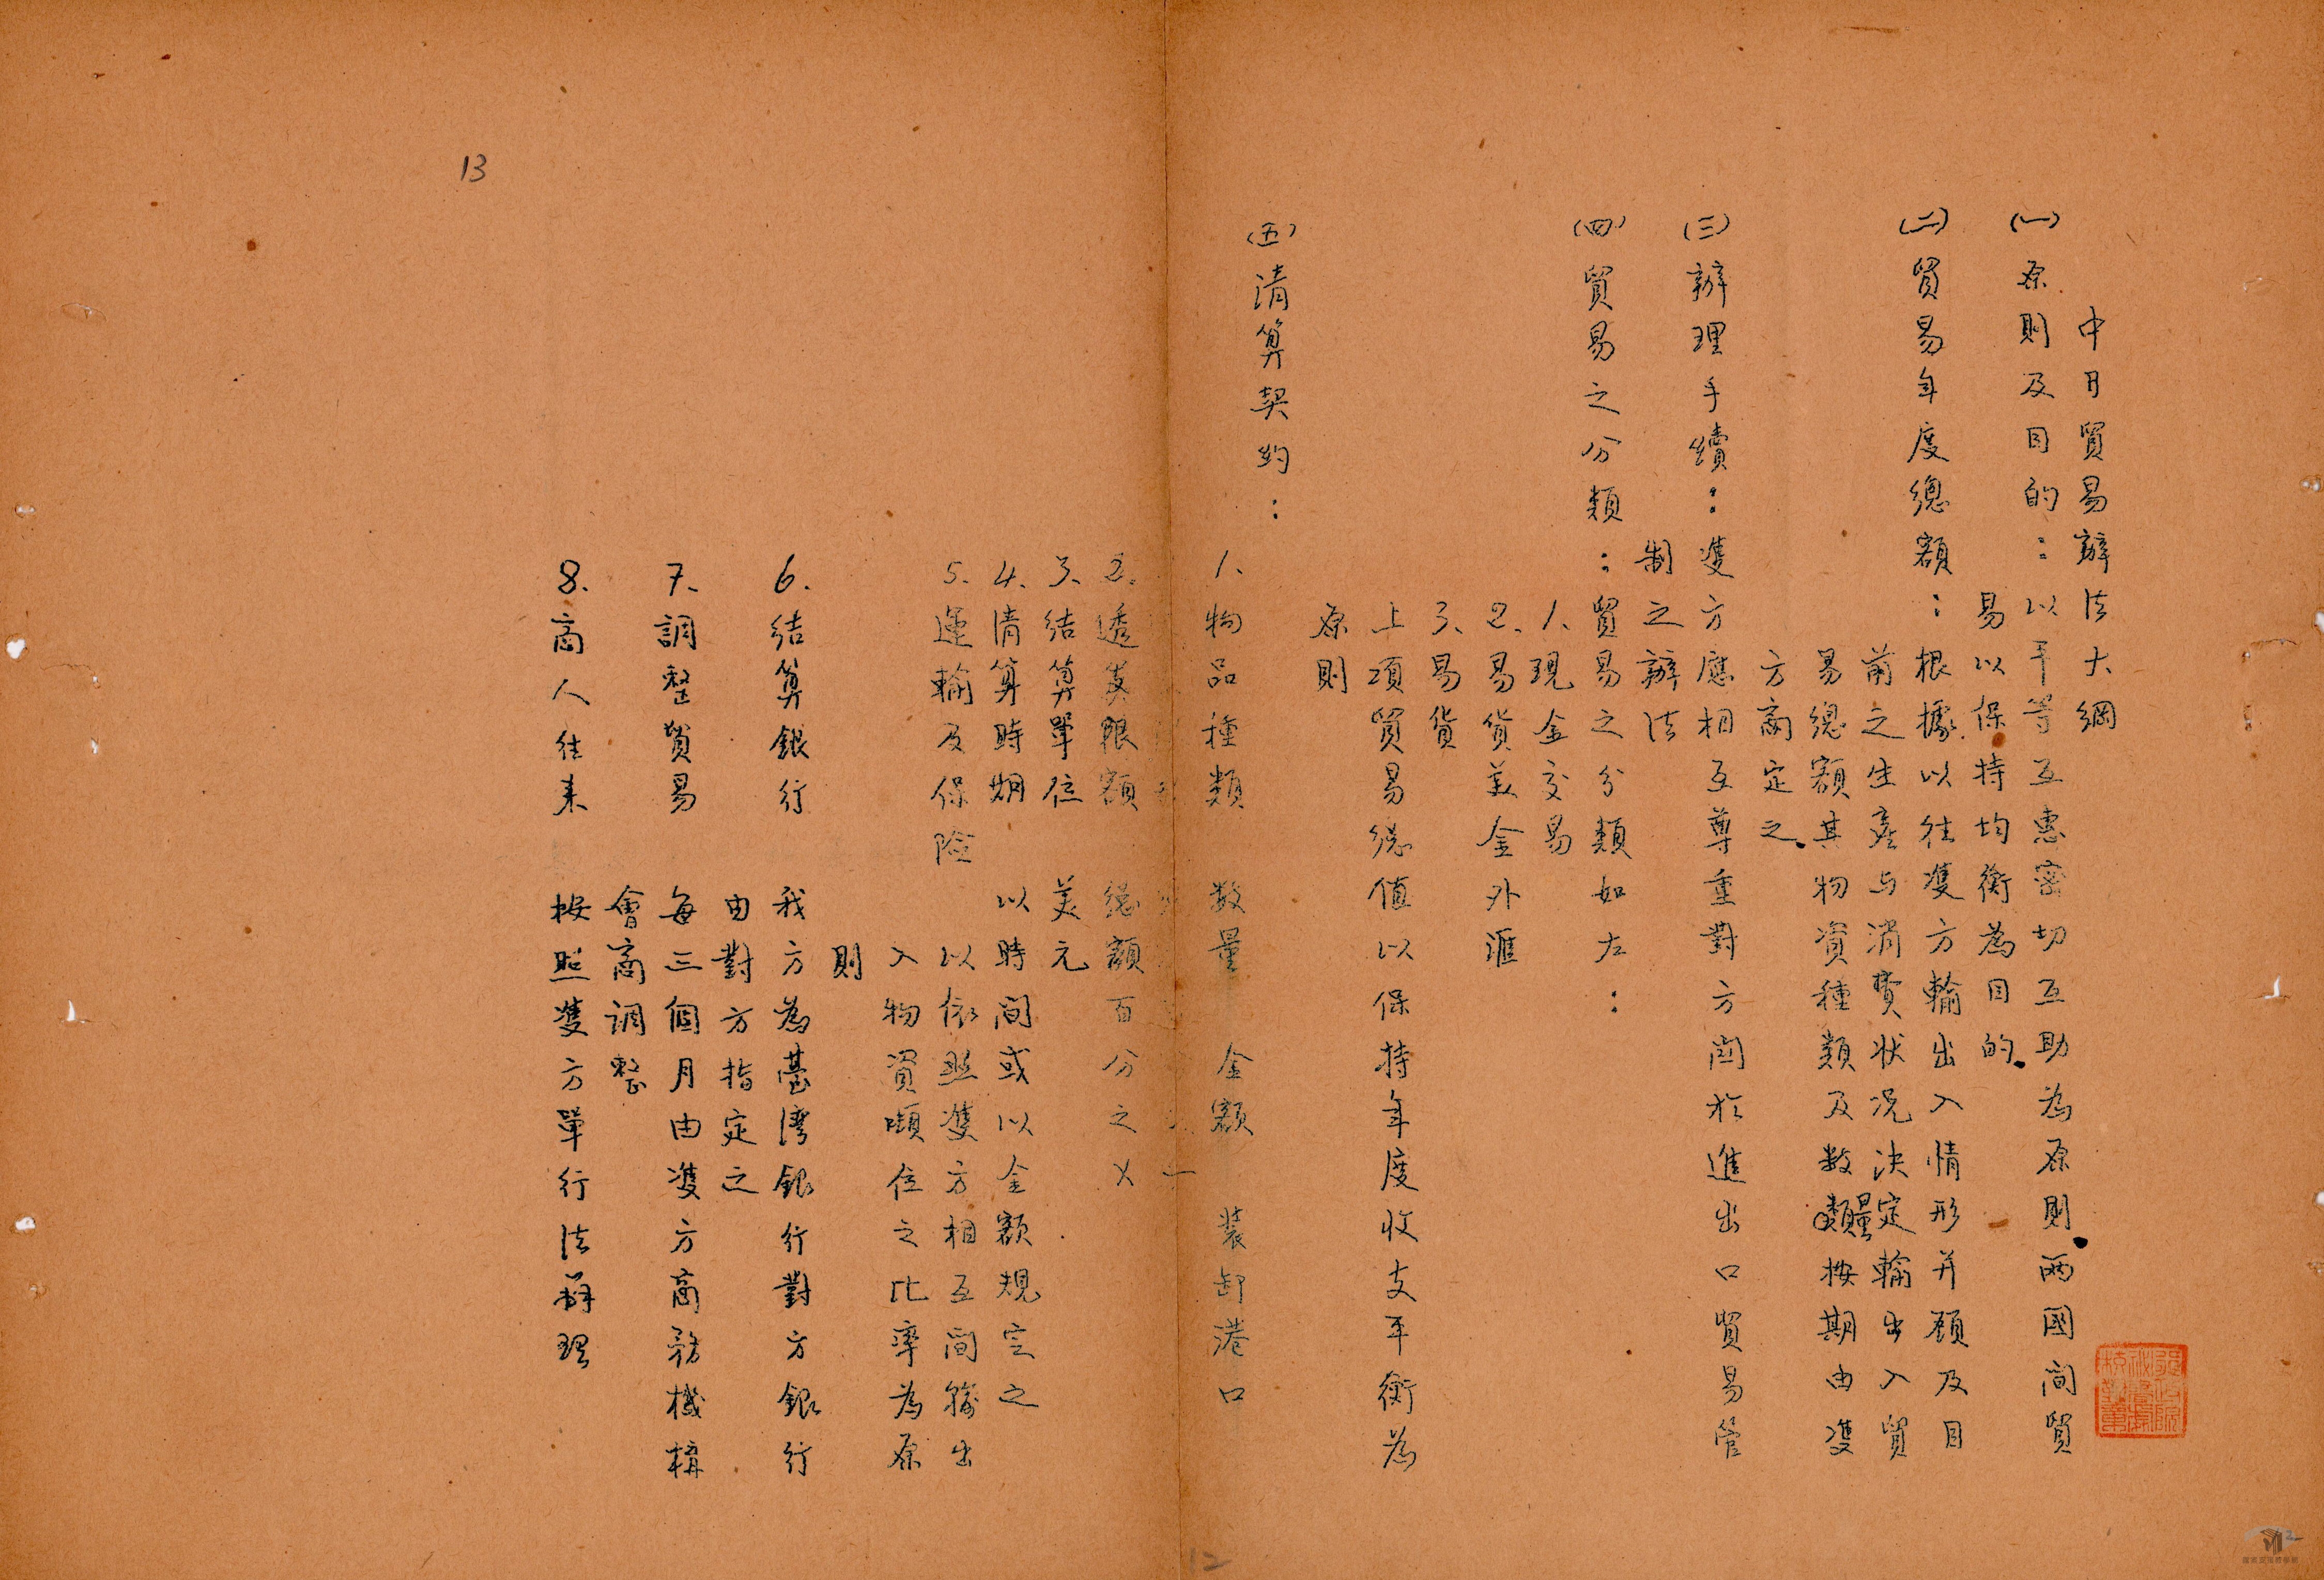 中日貿易辦法大綱
(一)原則及目的：以平等互惠密切互助為原則。兩國間貿
易以保持均衡為目的。
(二)貿易年度總額：根據以往雙方輸出入情形并顧及目
前之生產与消費狀況決定輸出入貿
易總額其物資種類及数量按期由雙
方商定之。
(三)辦理手續：雙方應相互尊重對方関於進出口貿易管
制之辦法
(四)貿易之分類：貿易之分類如左：
1、現金交易
2、易貨美金外滙
3、易貨
上項貿易總值以保持年度收支平衡為
原則
(五)清算契約：
1、物品種類 数量 金額 裝卸港口
2、透支限額 總額百分之乂
3、結算單位 美元
4、清算時期 以時間或以金額規定之
5、運輸及保險 以依照雙方相互間輸出
入物資噸位之比率為原
則
6、結算銀行 我方為臺灣銀行對方銀行
由對方指定之
7、調整貿易 每三個月由雙方商務機構
會商調整
8、商人往来 按照雙方單行法辦理
13
12